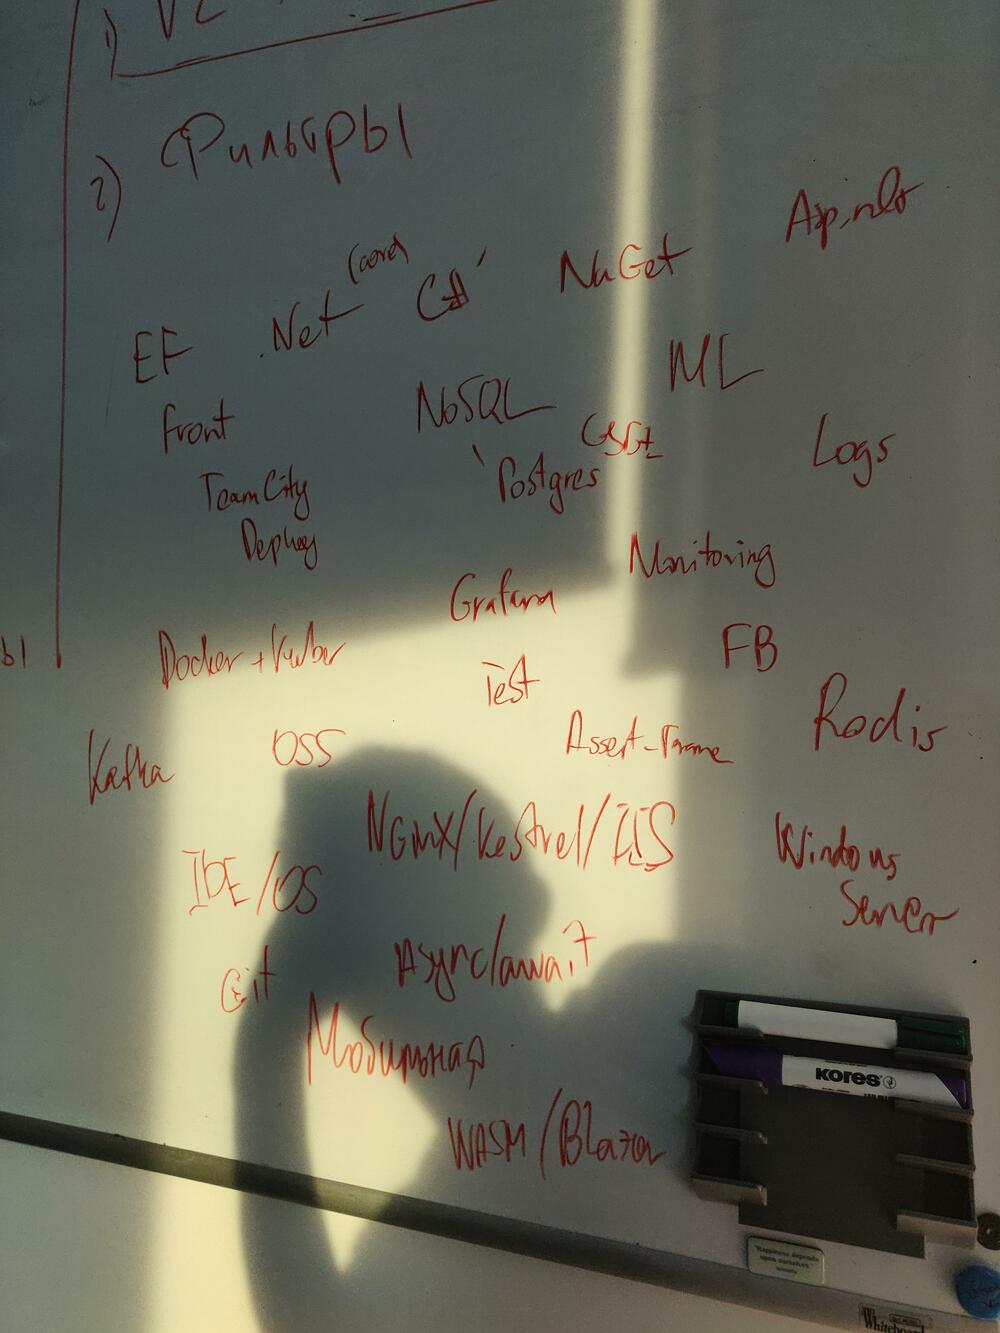 1)
2) Фильтры
EF .Net (core) C# NuGet Asp.net
Front NoSQL ML
Postgres Logs
TeamCity
Deploy
Grafana Monitoring
Docker + Kuber Test FB
Kafka OSS Redis
NGinX/Kestrel/IIS
IDE/OS Windows
Server
Git Async/await
Мобильная
WASM/Blazor
ы
KORES
"Happiness depends
upon ourselves"